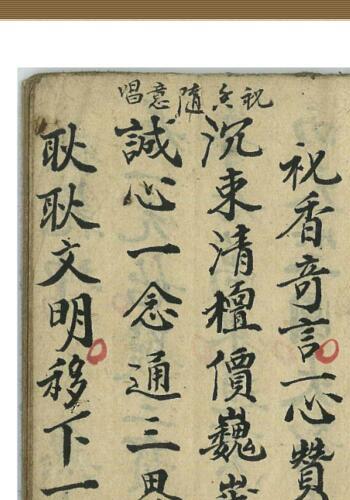 祝香隨意唱
祝香奇言一心贊
沉束清檀價巍巍
誠心一念通三界
耿耿文明移下一